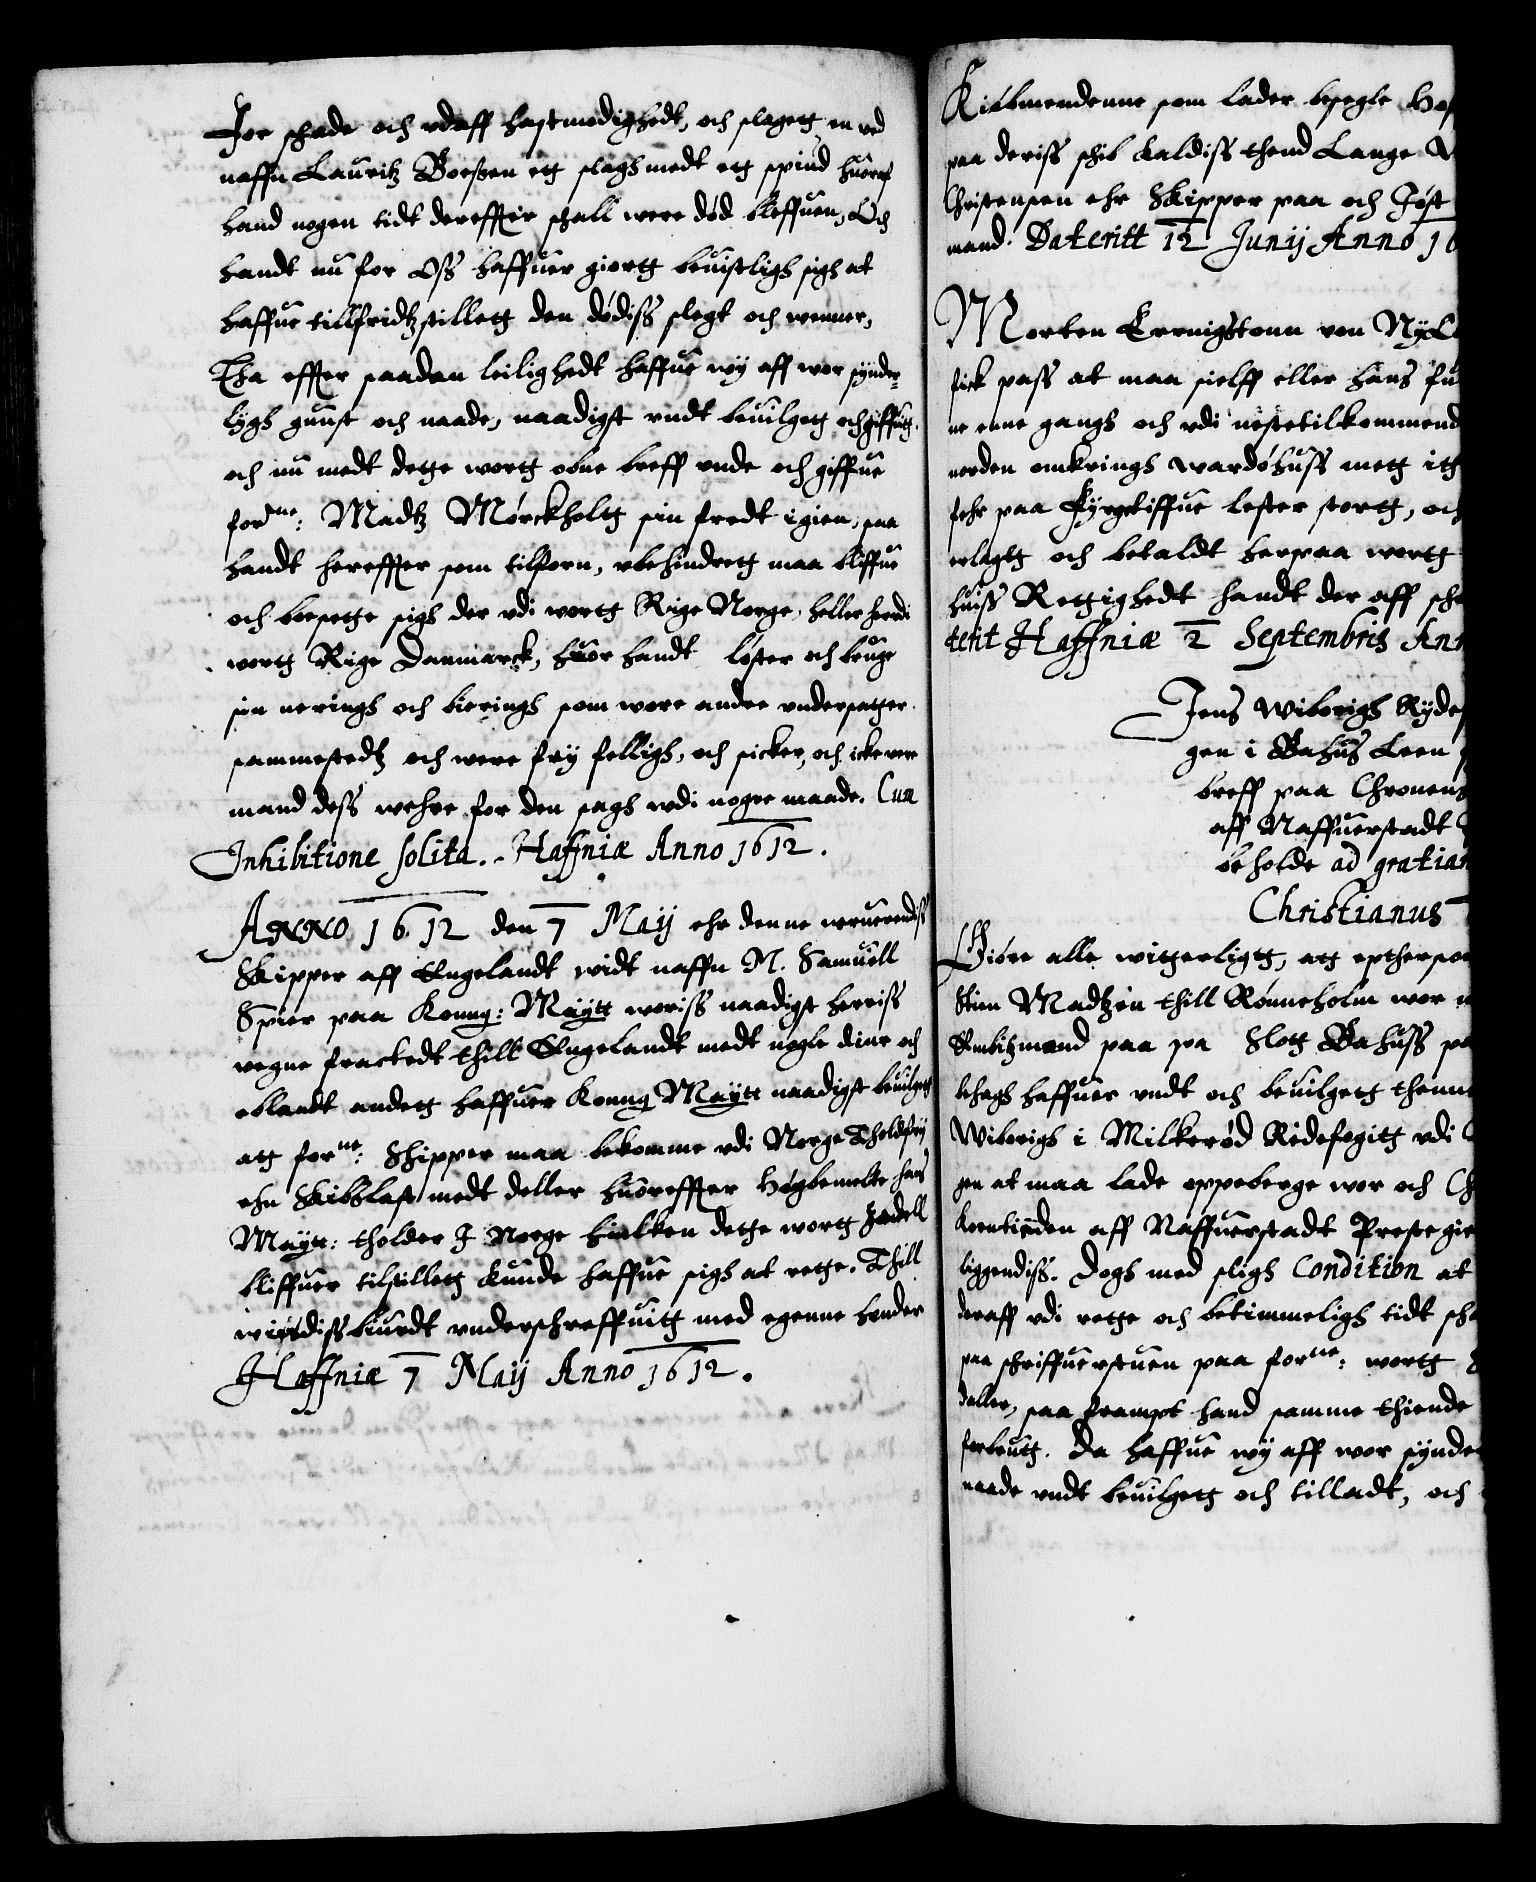 For schade och vdaff hastmodighedt, och slagetg en ved
naffn Lauritz Boesen etg slagh medt etg spiud huoraf
hand nogen tidt derefftir schall were død bleffuen, Och
handt nu for Oss haffuer giortg beuisligh sigh at
haffue tillfridtzstilletg den dødiss slegt och wenner,
Tha effter saadan leilighedt haffue wy aff wor synder-
lygh gunst och naade, naadigst vndt beuilgetg och giffuitg.
och nu medt dette wortg obne breff vnde och giffue
forne: Madtz Mørckholtg sin fredt igien, saa
handt hereffter som tilforn, vbehindretg maa bliffue
och besette sigh der vdi wortg Rige Norge, heller her vdi
wortg Rige Danmarck, huor handt løster och bruge
sin nerings och bierings som wore andre vndersatter
sammestedtz och were fry felligh, och sicker, och icke vere
mand dess wehre for den sagh vdi nogre maade. Cum
Inhibitione solita. - Haffniæ Anno 1612.
ANNO 1612 den 7 Maij ehr denne neruerendiss
Skipper aff Engelandt widt naffn M. Samuell
Spier paa Konng: Maytt woriss naadigst herriss
vegne fractedt thill Engelandt medt nogle diur och
eblandt andetg haffuer Konng Maytt naadigst beuilgetg
atg forne: Skipper maa bekomme vdi Norge Tholdfry
ehn Skibslast medt deller huoreffter Høgbemelte hans
Maytt: tholder I Norge huilken dette wortg Zedell
bliffuer tilstilletg kunde haffue sigh at rette. Thill
widissbiurdt vnderschreffuitg med egenne hender
Haffniæ 7 Maij Anno 1612.
Kiøbmendenne som lader besegle
paa deriss schib kaldiss thend Lange
Christensen ehr Skipper paa och Jost
mand. Dateritt 12 Junij Anno 16
Morten von Ny
fick pass at maa sielff eller hans fu
ne enne gangh och vdi nestetilkommend
norden omkrings Wardøhuss metg itg
fehr paa Fyrgetiffue lester stortg, och
erlagtg och betaldt herpaa wortg
huiss Rettighedt handt der aff sch
terit Haffniæ 2 Septembris Ann
Jens Wiborigh Ryde
gen i Bahus Leen
breff paa Chronens
aff Naffuerstadt
beholde ad gratiam
Christianus
Giøre alle witterligtg, atg eptherso
Stien Madtzen thill Rønneholm wor
Embitzmand paa Slotg Bahuss
behagh haffuer vndt och beuilgetg thenne
Wiborigh i Milkerød Ridefogitg vdi
gen at maa lade oppeberge wor och Ch
korntienden aff Naffuerstadt Prestegie
liggendiss. Dogh med sligh Condition at
deraff vdi rette och betimmeligh tidt sch
paa schriffuerstuen paa forne: wortg
daller, saa frampt hand samme thiende
forbrutg. Da haffue wy aff wor synder
naade vndt beuilgetg och tilladt, och